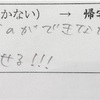 かない) → 帰宅
のができな
せる!!!